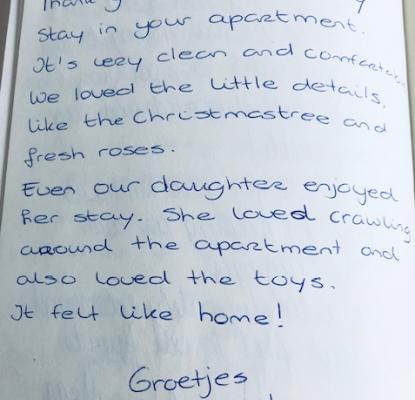 stay in your apartment.
It's very clean and
We loved the little details,
like the Christmastree and
fresh roses.
Even our daughter enjoyed
her stay. She loved crawling
around the apartment and
also loved the toys.
It felt like home!
Groetjes